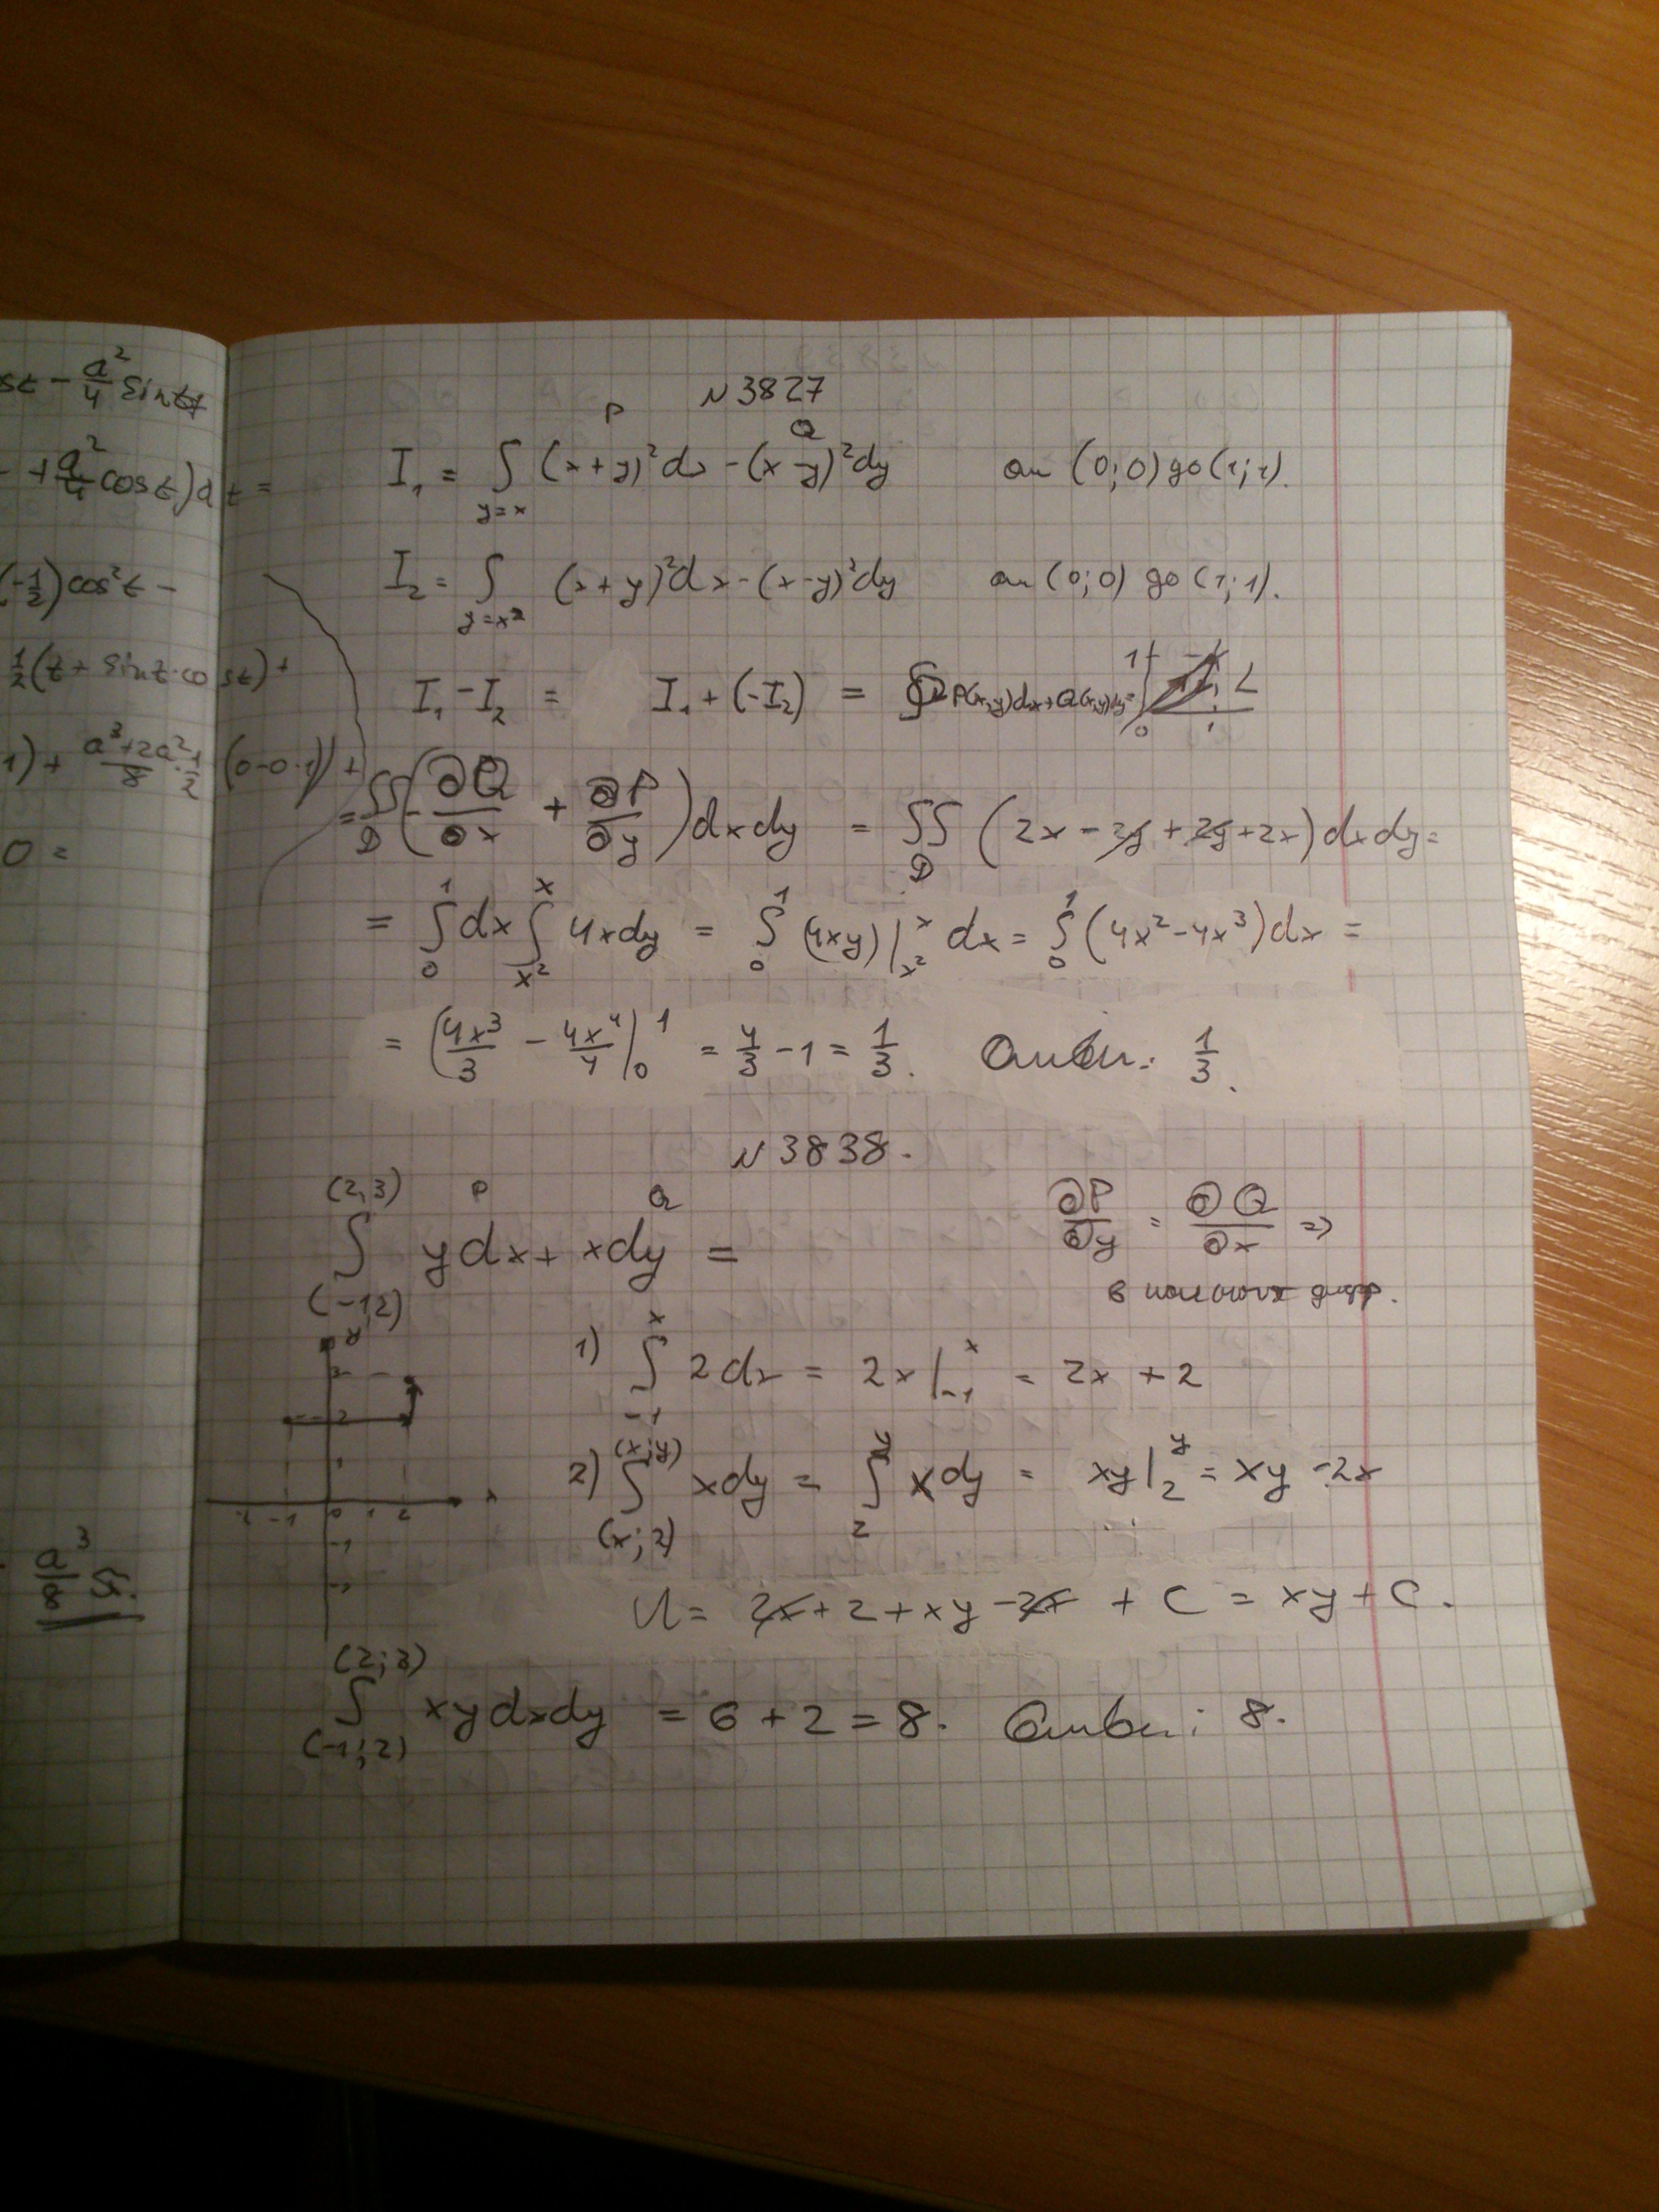 st - a²/4 sin t
+ a²/4 cos t) dt =
(-1/2) cos² t -
1/2 (t + sin t · cos t) +
1) + (a³+2a²)/8 · 1/2 (0-0·1) +
0 =
N 3827
P Q
I₁ = ∫_{y=x} (x+y)²dx - (x-y)²dy от (0;0) до (1;1).
I₂ = ∫_{y=x²} (x+y)²dx - (x-y)²dy от (0;0) до (1;1).
I₁ - I₂ = I₁ + (-I₂) = ∮ P(x,y)dx + Q(x,y)dy =
1 L 0 1
= ∬_D (-∂Q/∂x + ∂P/∂y) dxdy = ∬_D (2x - 2y + 2y + 2x) dxdy =
= ∫_0^1 dx ∫_{x²}^x 4x dy = ∫_0^1 (4xy)|_{x²}^x dx = ∫_0^1 (4x² - 4x³)dx =
= (4x³/3 - 4x⁴/4)|_0^1 = 4/3 - 1 = 1/3. Ответ: 1/3.
N 3838.
∫_{(-1,2)}^{(2,3)} y dx + x dy = ∂P/∂y = ∂Q/∂x =>
P Q
в полных дифф.
1) ∫_{-1}^x 2dx = 2x|_{-1}^x = 2x + 2
2) ∫_{(x;2)}^{(x;y)} x dy = ∫_2^y x dy = xy|_2^y = xy - 2x
U = 2x + 2 + xy - 2x + C = xy + C.
∫_{(-1;2)}^{(2;3)} xy dx dy = 6 + 2 = 8. Ответ: 8.